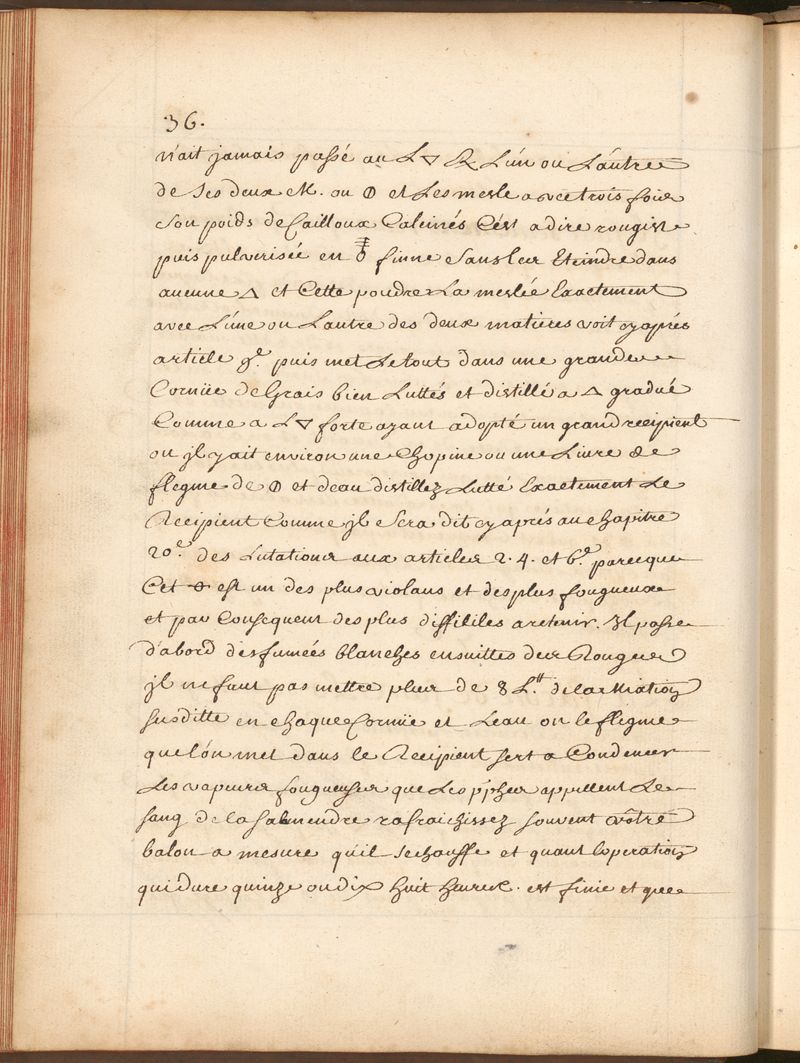 36.
n'ait jamais passé au L🜄 & L'ún ou L'aûtre
de ses deux M. ou 🜕 et Les mesle avec trois fois
son poids de Cailloux Calcinés C'ést a dire rougist
puis pulverisée en finne sans les Eteindre dans
aucunne 🜂 et Cette poudre La meslée Exactement
avec L'úne ou L'autre des deux matieres voit cy aprés
article 9.e puis met Le tout dans une grande
Cornúe de Grais bien Luttés et distillé a 🜂 gradué
Comme a L🜄 forte ayant adopté un grand recipient
ou jl y ait environ une Chopine ou une Livre de
flegme de 🜕 et d'eau distillez Lutté Exactement Le
Recipient Comme jl sera dit cy aprés au chapitre
20.e des Lutations aux articles 2. 4. et 6.e parceque
Cet est un des plus violans et des plus fougueux
et par Consequent des plus diffililes a retenir. Il passe
d'abord des fumées blanches ensuittes des Rouges
jl ne faut pas mettre plus de 8 L.tt de la Mation
susditte en chaque Cornúe et L'eau ou le flegme
que l'ón met dans le Recipient sert a Condencer
Les vapeurs fougueuses que Les p'phes appellent Le
sang de la Salmendre rafraichissez souvent vôtre
balon a mesure qu'il s'echauffe et quant l'operation
qui dure quinze ou dix huit heures. est finie et que